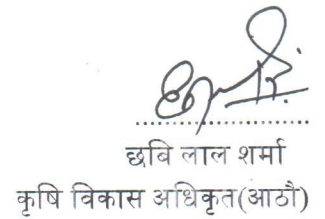 ........................
छबि लाल शर्मा
कृषि विकास अधिकृत(आठौ)